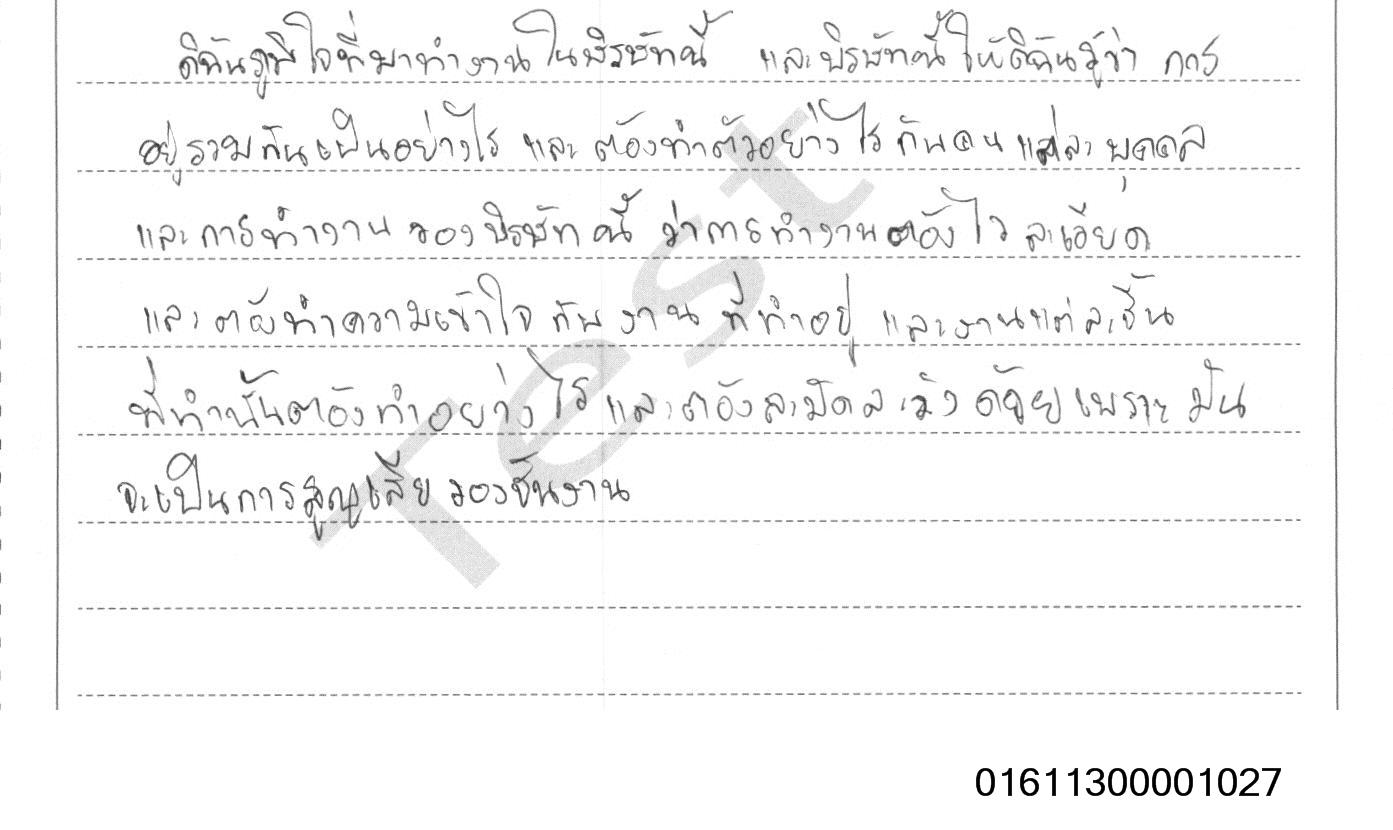 ดิฉันภูมิใจที่มาทำงานในบริษัทนี้ และบริษัทนี้ให้ดิฉันรู้ว่า การ
อยู่รวมกันเป็นอย่างไร และ ต้องทำตัวอย่างไร กับคน แต่ละ บุคคล
และการทำงาน ของบริษัทนี้ ว่าการทำงานต้องไว ละเอียด
และ ต้องทำความเข้าใจ กับ งาน ที่ทำอยู่ และงานแต่ละชิ้น
ที่ทำนั้นต้องทำอย่างไร และต้องระมัดระวัง ด้วย เพราะ มัน
จะเป็นการสูญเสีย ของชิ้นงาน
Test
01611300001027